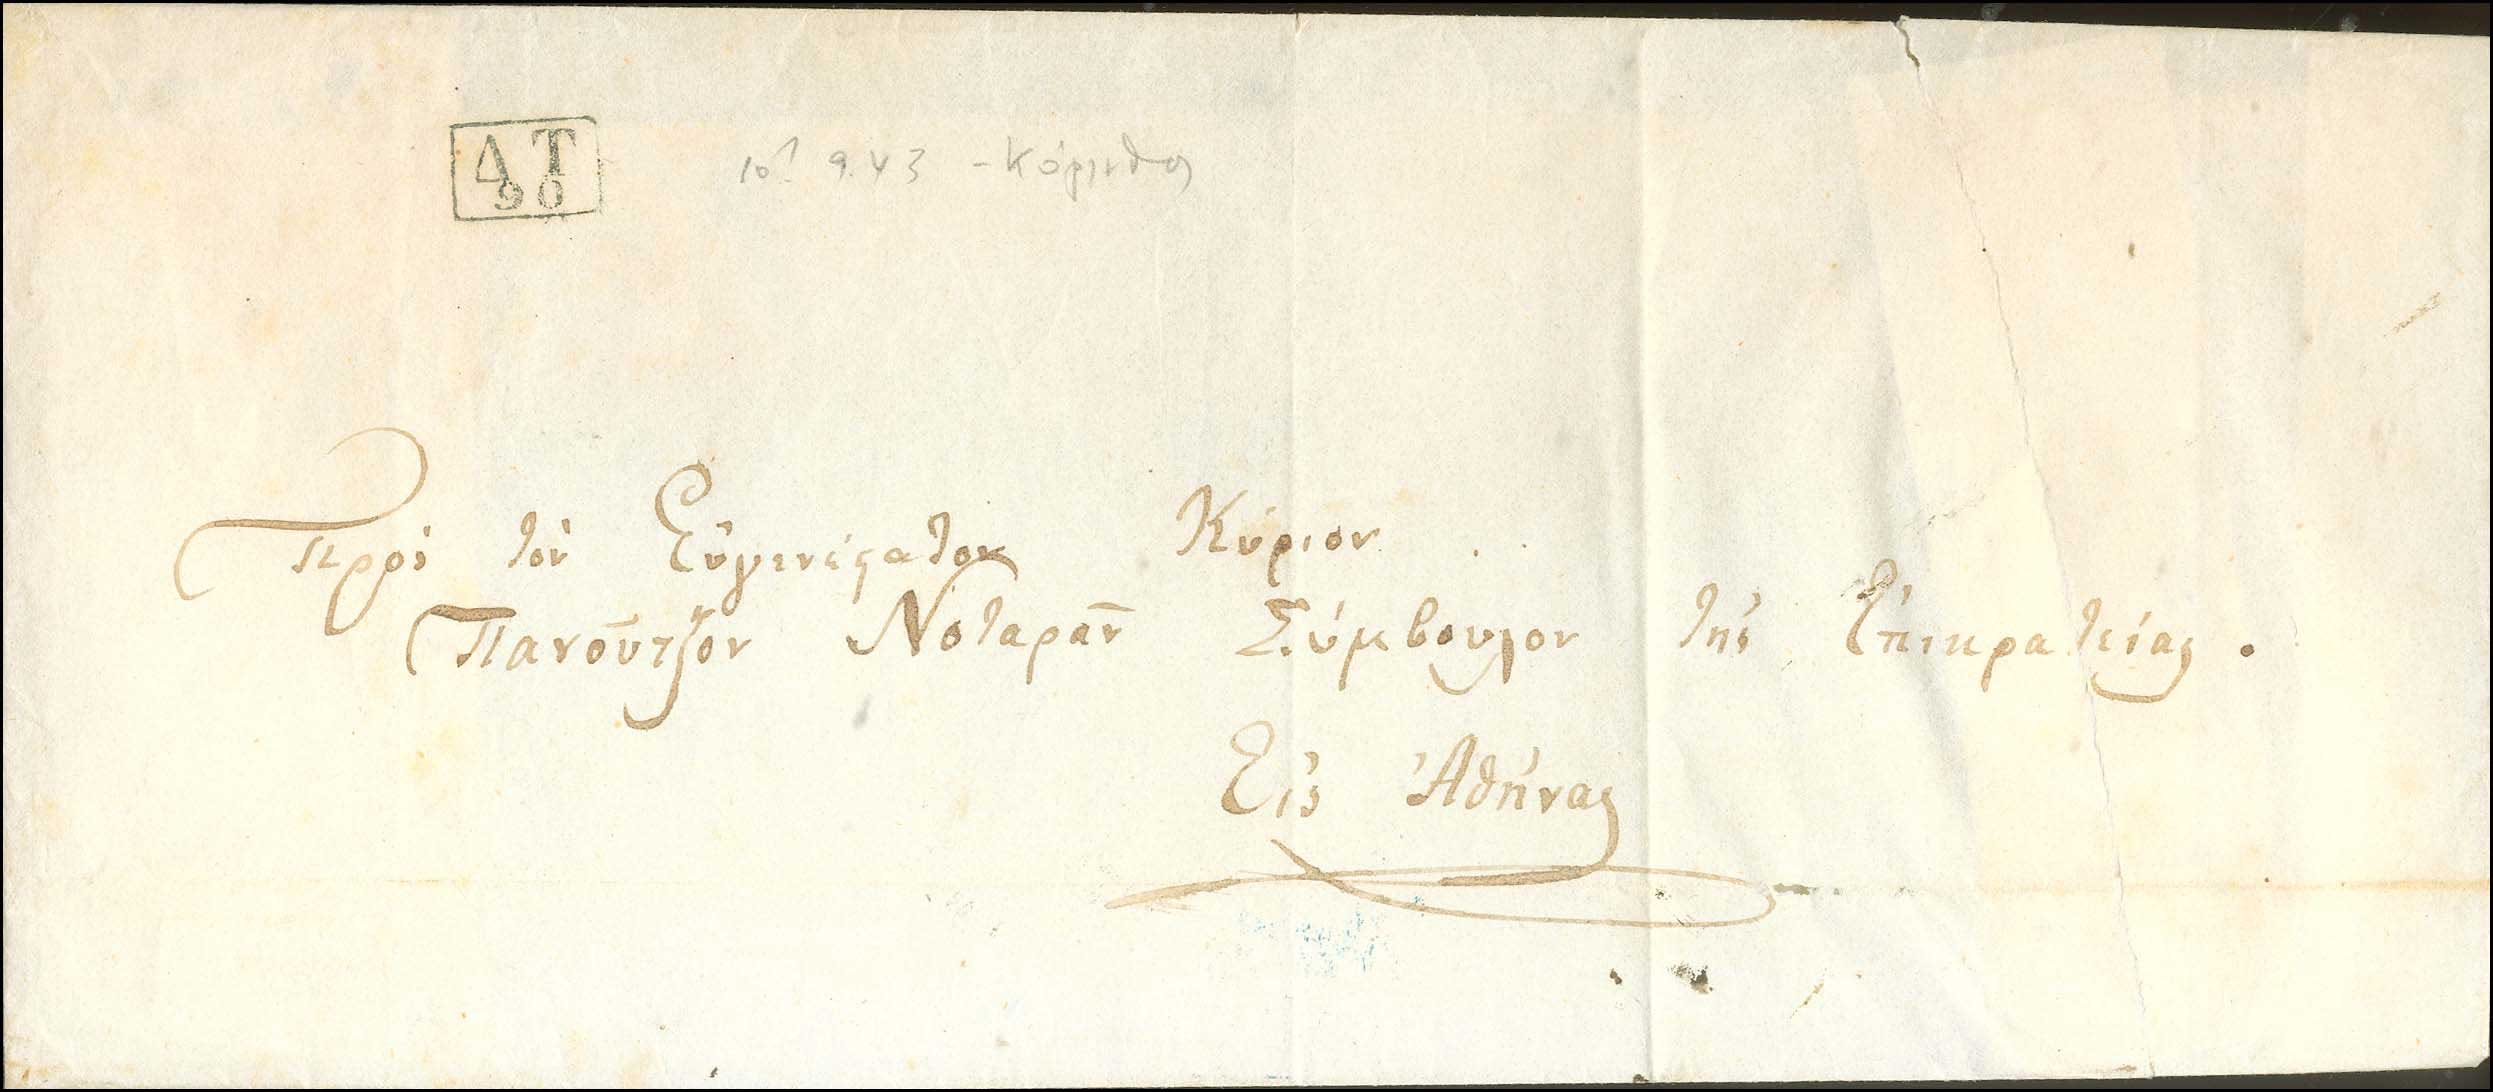 ΔΤ
90
9.43 - Κόρινθος
Πρὸς τὸν Εὐγενέστατον Κύριον
Πανοῦτζον Νοταρᾶν Σύμβουλον τῆς Ἐπικρατείας.
Εἰς Ἀθήνας